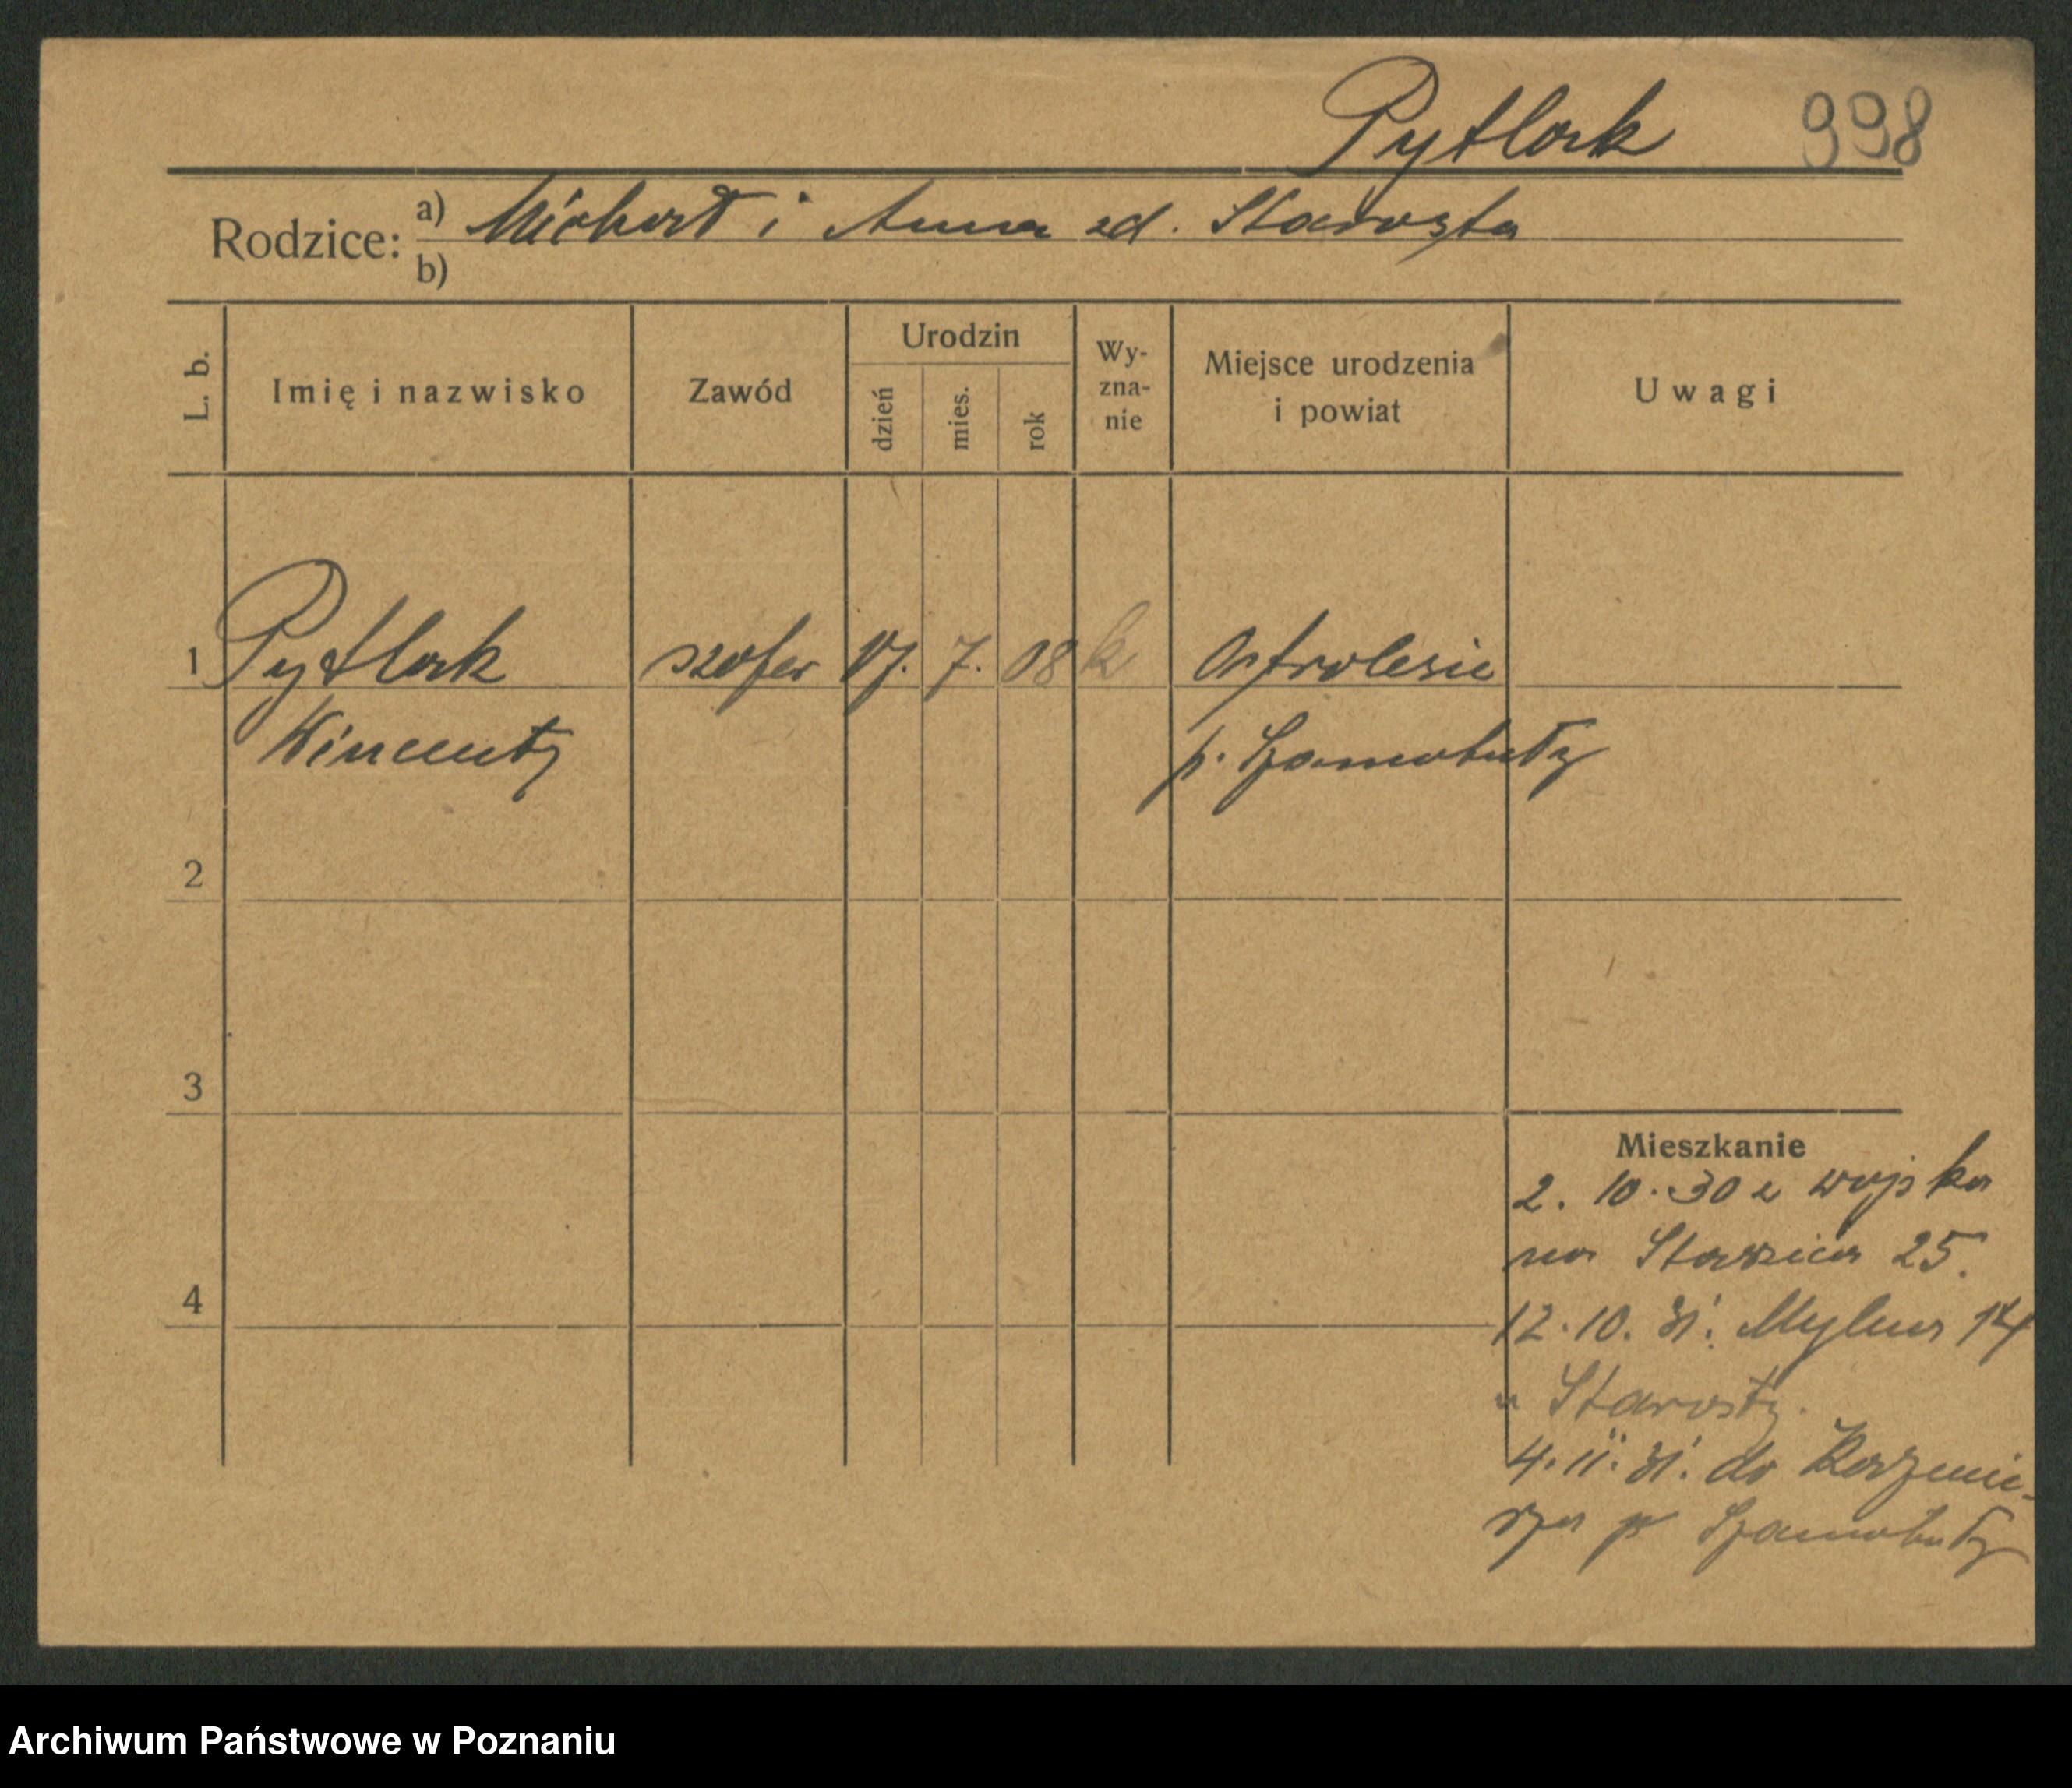 Pytlak 998
Rodzice: a) Michał i Anna zd. Starosta
b)
L. b. Imię i nazwisko Zawód Urodzin dzień mies. rok Wy-zna-nie Miejsce urodzenia i powiat Uwagi
1 Pytlak szofer 17. 7. 08 k Ostrolesie
Wincenty p. Szamotuły
2
3
Mieszkanie
2. 10. 30 z wojska
na Staszica 25.
4
12. 10. 31. Mylna 14
u Starosty.
4. 11. 31. do Kaźmie-
rza p Szamotuły
Archiwum Państwowe w Poznaniu